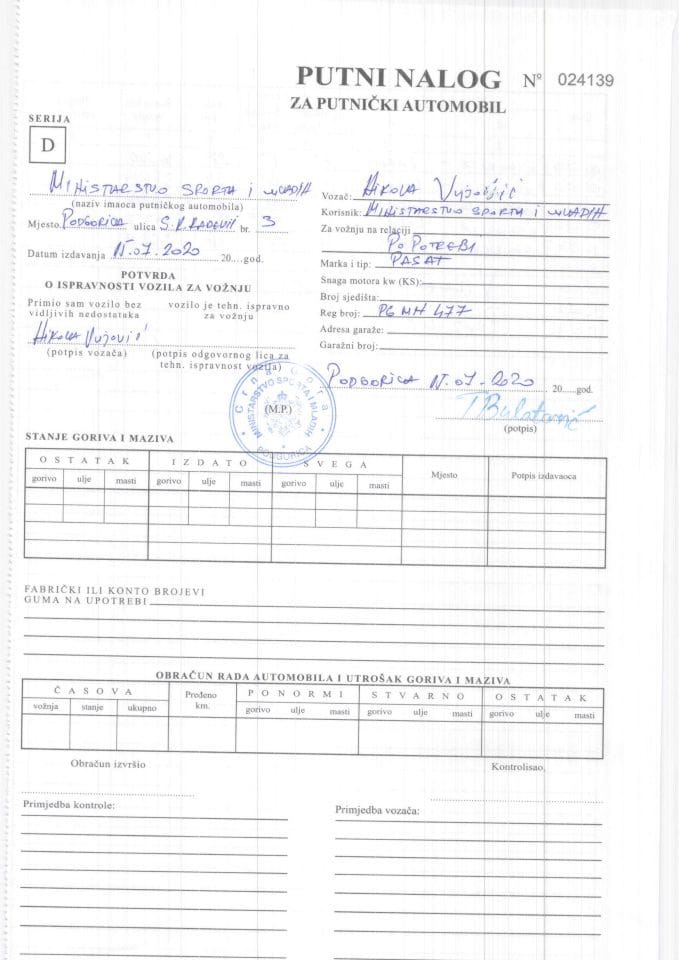 PUTNI NALOG N° 024139
ZA PUTNIČKI AUTOMOBIL
SERIJA
D
MINISTARSTVO SPORTA I MLADIH
(naziv imaoca putničkog automobila)
Mjesto PODGORICA ulica S.K.RADEVIĆ br. 3
Datum izdavanja 15.07.2020 20....god.
POTVRDA
O ISPRAVNOSTI VOZILA ZA VOŽNJU
Primio sam vozilo bez vidljivih nedostataka
vozilo je tehn. ispravno za vožnju
Nikola Vujović
(potpis vozača)
(potpis odgovornog lica za tehn. ispravnost vozila)
Vozač: Nikola Vujović
Korisnik: MINISTARSTVO SPORTA I MLADIH
Za vožnju na relaciji
PO POTREBI
Marka i tip: PASAT
Snaga motora kw (KS):
Broj sjedišta:
Reg broj: PG MH 477
Adresa garaže:
Garažni broj:
PODGORICA 15.07.2020 20....god.
(M.P.)
Crna Gora
MINISTARSTVO SPORTA I MLADIH
PODGORICA
T Bulatović
(potpis)
STANJE GORIVA I MAZIVA
OSTATAK IZDATO SVEGA Mjesto Potpis izdavaoca
gorivo ulje masti gorivo ulje masti gorivo ulje masti
FABRIČKI ILI KONTO BROJEVI
GUMA NA UPOTREBI
OBRAČUN RADA AUTOMOBILA I UTROŠAK GORIVA I MAZIVA
ČASOVA Pređeno km. PO NORMI STVARNO OSTATAK
vožnja stanje ukupno gorivo ulje masti gorivo ulje masti gorivo ulje masti
Obračun izvršio
Kontrolisao,
Primjedba kontrole:
Primjedba vozača: